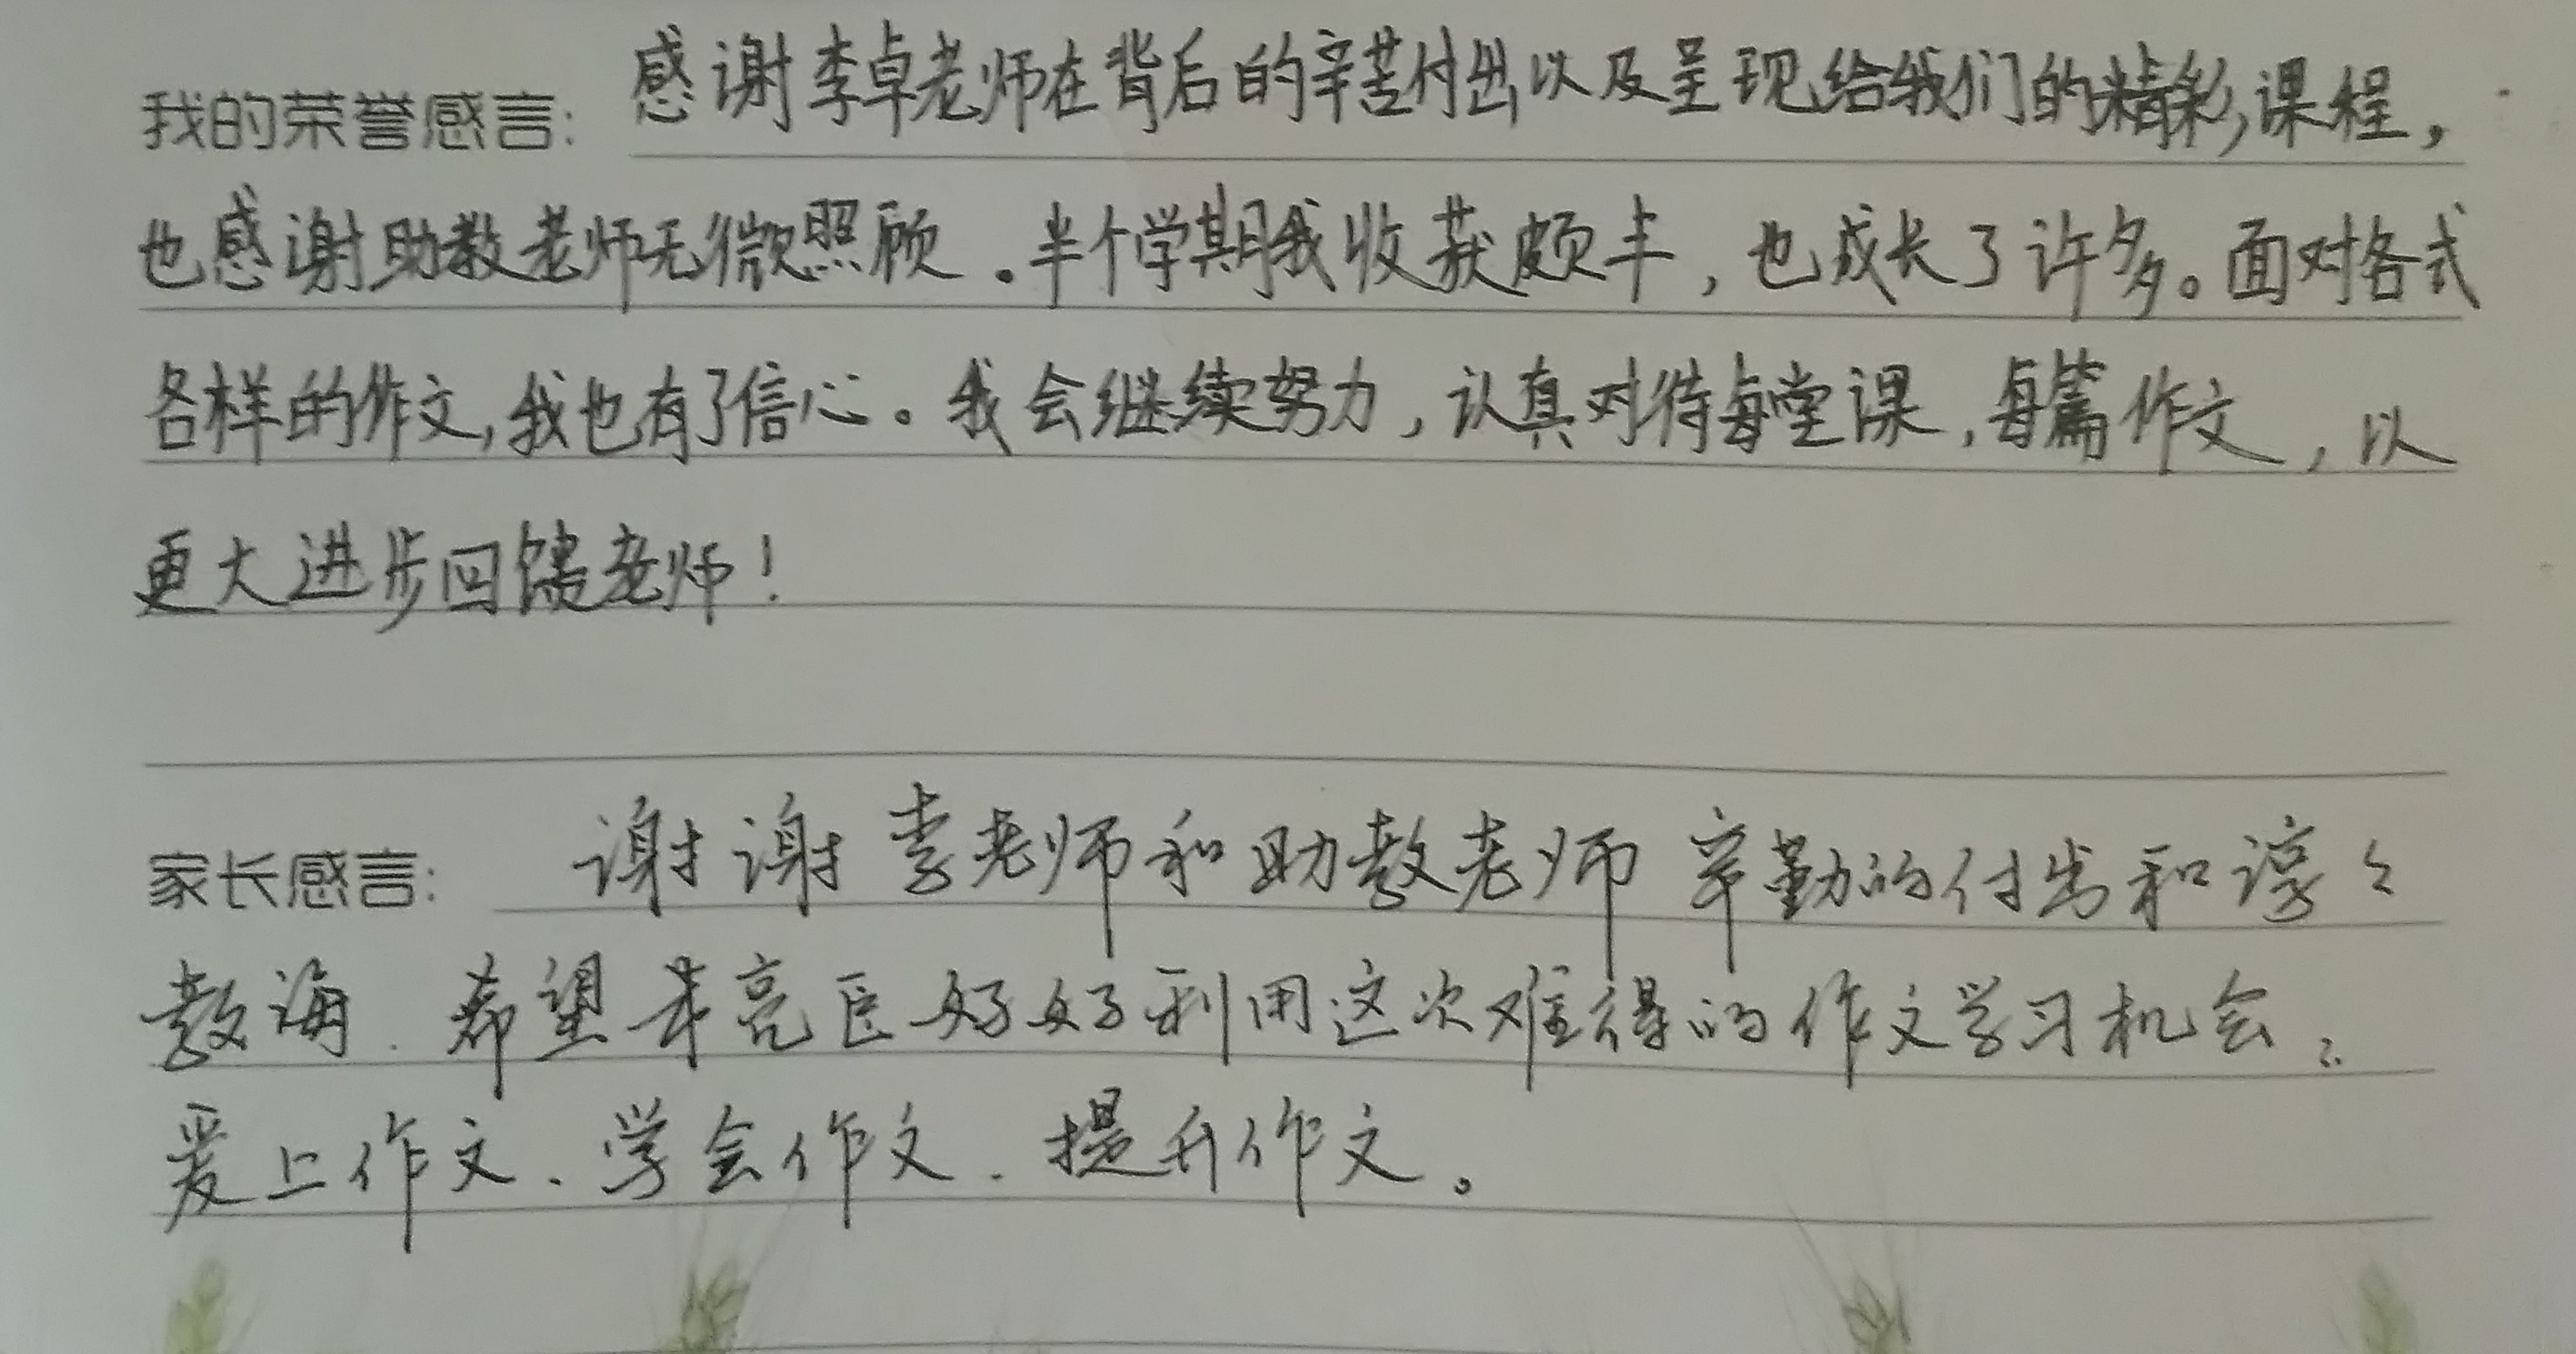 我的荣誉感言：感谢李卓老师在背后的辛苦付出以及呈现给我们的精彩课程，
也感谢助教老师无微照顾。半个学期我收获颇丰，也成长了许多。面对各式
各样的作文，我也有了信心。我会继续努力，认真对待每堂课，每篇作文，以
更大进步回馈老师！
家长感言：谢谢李老师和助教老师辛勤的付出和谆々
教诲．希望亮臣好好利用这次难得的作文学习机会。
爱上作文、学会作文．提升作文。